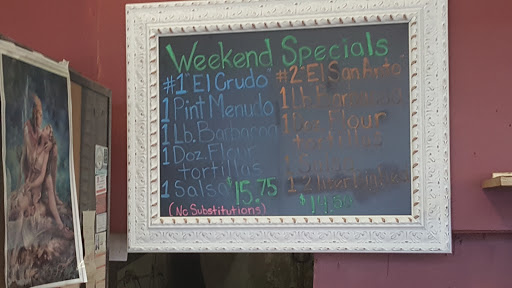 Weekend Specials
#1 "El Crudo"
1 Pint Menudo
1 Lb. Barbacoa
1 Doz. Flour
tortillas
1 Salsa $15.75
(No Substitutions)
#2 "El San Anto"
1 Lb. Barbacoa
1 Doz. Flour
tortillas
1
1 2